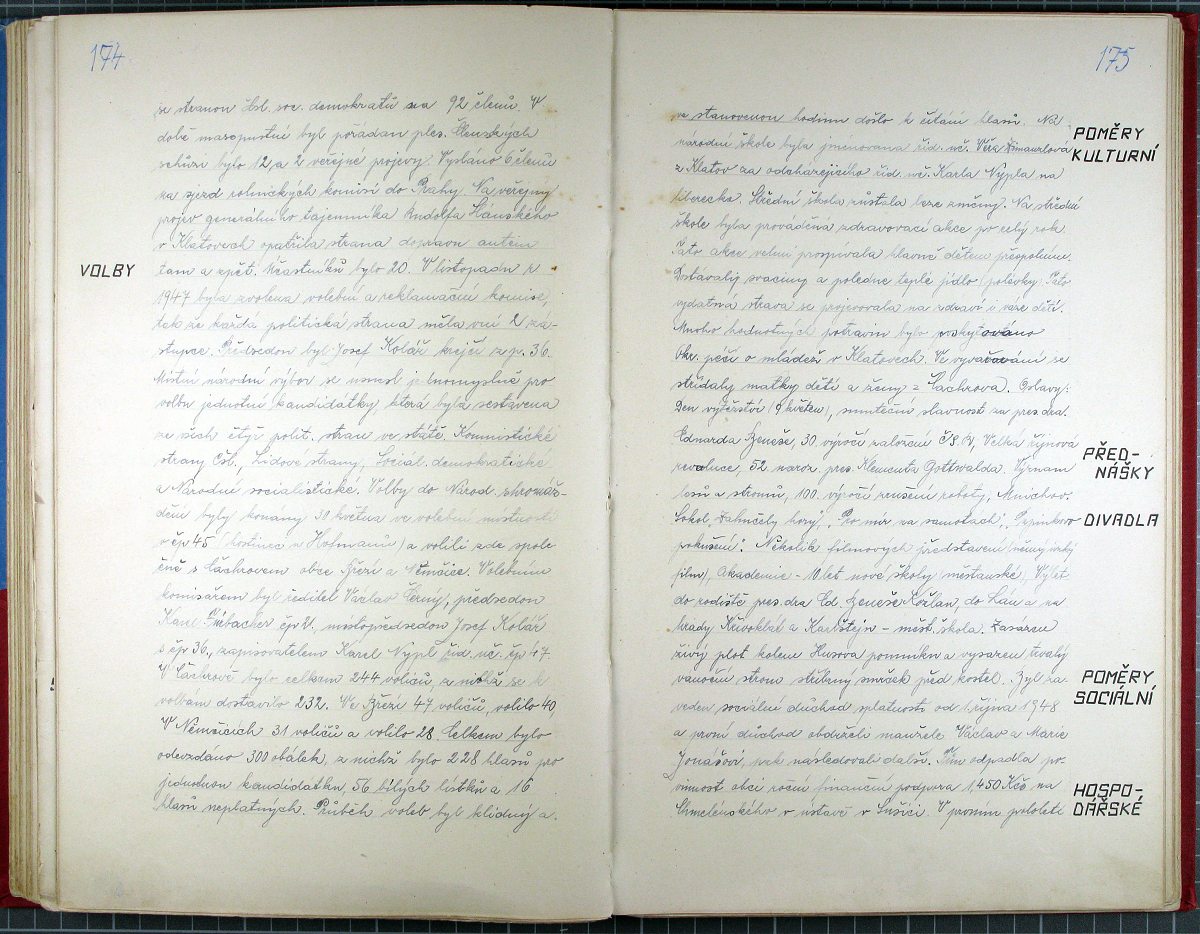 174
se stranou čsl. soc. demokratů na 92 členů. V
době masopustní byl pořádán ples. Členských
schůzí bylo 12 a 2 veřejné projevy. Vysláno 6 členů
na sjezd rolnických komisí do Prahy. Na veřejný
projev generálního tajemníka Rudolfa Slánského
v Klatovech opatřila strana dopravu autem
tam a zpět. Účastníků bylo 20. V listopadu r.
VOLBY
1947 byla zvolena volební a reklamační komise,
tak že každá politická strana měla v ní 2 zá-
stupce. Předsedou byl Josef Kolář krejčí čp. 36.
Místní národní výbor se usnesl jednomyslně pro
volbu jednotné kandidátky, která byla sestavena
ze všech čtyř polit. stran ve státě. Komunistické
strany Čsl., Lidové strany, Sociál. demokratické
a Národní socialistické. Volby do Národ. shromáž-
dění byly konány 30 května ve volební místnosti
v čp 45 (hostinec u Hofmanů) a volili zde spole-
čně s Čachrovem obce Březí a Němčice. Volebním
komisařem byl ředitel Václav Černý, předsedou
Karel čp 21, místopředsedou Josef Kolář
z čp 36., zapisovatelem Karel Nypl říd. uč. čp 47.
V Čachrově bylo celkem 244 voličů, z nichž se k
volbám dostavilo 232. Ve Březí 47 voličů, volilo 40,
V Němčicích 31 voličů a volilo 28. Celkem bylo
odevzdáno 300 obálek, z nichž bylo 228 hlasů pro
jednotnou kandidátku, 56 bílých lístků a 16
hlasů neplatných. Průběh voleb byl klidný a
175
ve stanovenou hodinu došlo k čítání hlasů. Na
POMĚRY
KULTURNÍ
národní škole byla jmenována říd. uč. Věra
z Klatov za odcházejícího říd. uč. Karla Nypla na
Liberecko. Střední škola zůstala beze změny. Na střední
škole byla prováděna ozdravovací akce po celý rok.
Tato akce velmi prospívala hlavně dětem přespolním.
Dostávaly svačiny a poledne teplé jídlo (polévky). Tato
vydatná strava se projevovala na zdraví i váze dětí.
Mnoho hodnotných potravin bylo poskytováno
Okr. péčí o mládež v Klatovech. Ve vyvařování se
střídaly matky dětí a ženy z Čachrova. Oslavy:
Den vítězství (9 květen), smuteční slavnost za pres. dra.
Eduarda Beneše, 30 výročí založení ČSR, Velká říjnová
PŘED-
NÁŠKY
revoluce, 52. naroz. pres. Klementa Gottwalda. Význam
lesů a stromů, 100. výročí zrušení roboty, Mnichov.
DIVADLA
Sokol „Zahučely hory", „Pro mír na samotách", „Pepinkovo
pokušení". Několik filmových představení (němý úzký
film), Akademie - 10 let nové školy (měšťanské), Výlet
do rodiště pres. dra Ed. Beneše Kožlan, do Lán a na
hrady Křivoklát a Karlštejn - měšť. škola. Zasázen
živý plot kolem Husova pomníku a vysazen trvalý
vánoční strom stříbrný smrček před kostel. Byl za-
POMĚRY
SOCIÁLNÍ
veden sociální důchod platností od 1 října 1948
a první důchod obdrželi manželé Václav a Marie
Jonášovi, pak následovali další. Tím odpadla po-
vinnost obci roční finanční podpora 1.450 Kčs na
HOSPO-
DÁŘSKÉ
Chmelenského v ústavě v Sušici. V prvním pololetí